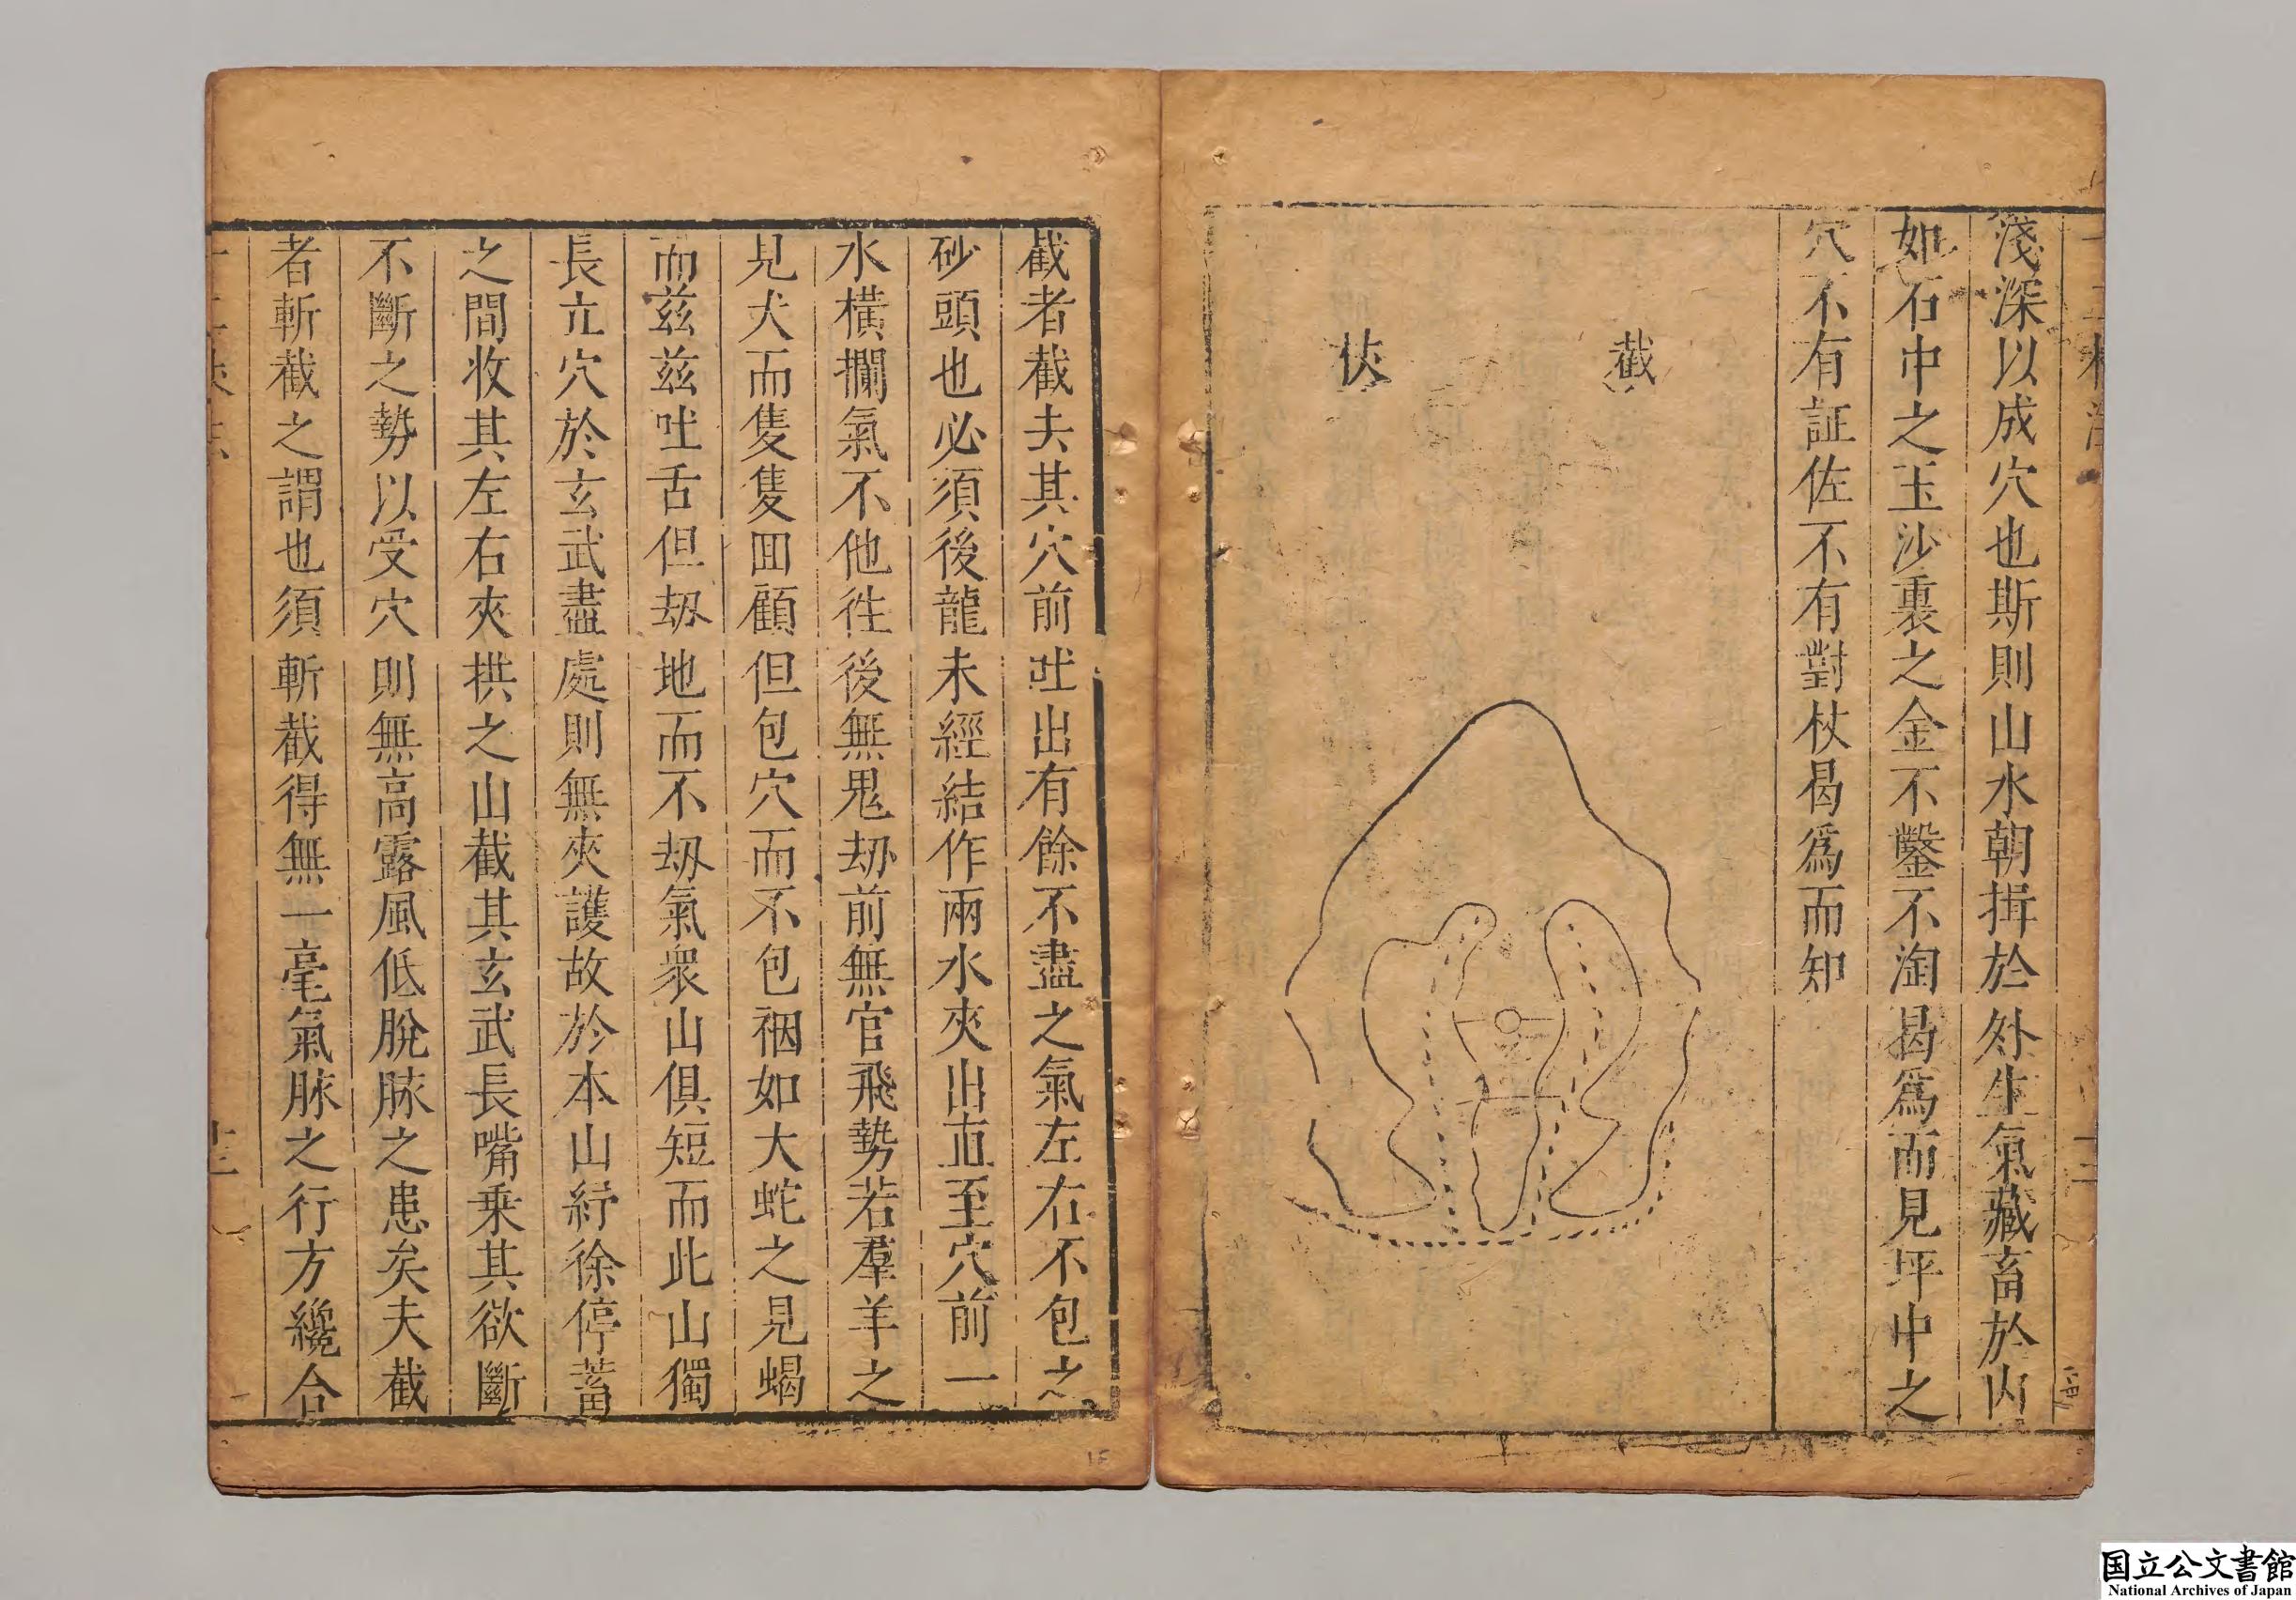 淺深以成穴也斯則山水朝揖於外生氣藏畜於內
如石中之玉沙裏之金不鑿不淘曷爲而見坪中之
穴不有証佐不有對杖曷爲而知
截
杖
截者截去其穴前吐出有餘不盡之氣左右不包之
砂頭也必須後龍未經結作兩水夾出直至穴前一
水橫攔氣不他徃後無鬼刼前無官飛勢若羣羊之
見犬而隻隻囬顧但包穴而不包裀如大蛇之見蝎
而兹兹吐舌但刼地而不刼氣衆山俱短而此山獨
長立穴於玄武盡處則無夾護故於本山紆徐停蓄
之間收其左右夾拱之山截其玄武長嘴乗其欲斷
不斷之勢以受穴則無高露風低脫脉之患矣夫截
者斬截之謂也須斬截得無一毫氣脉之行方纔合
国立公文書館
National Archives of Japan